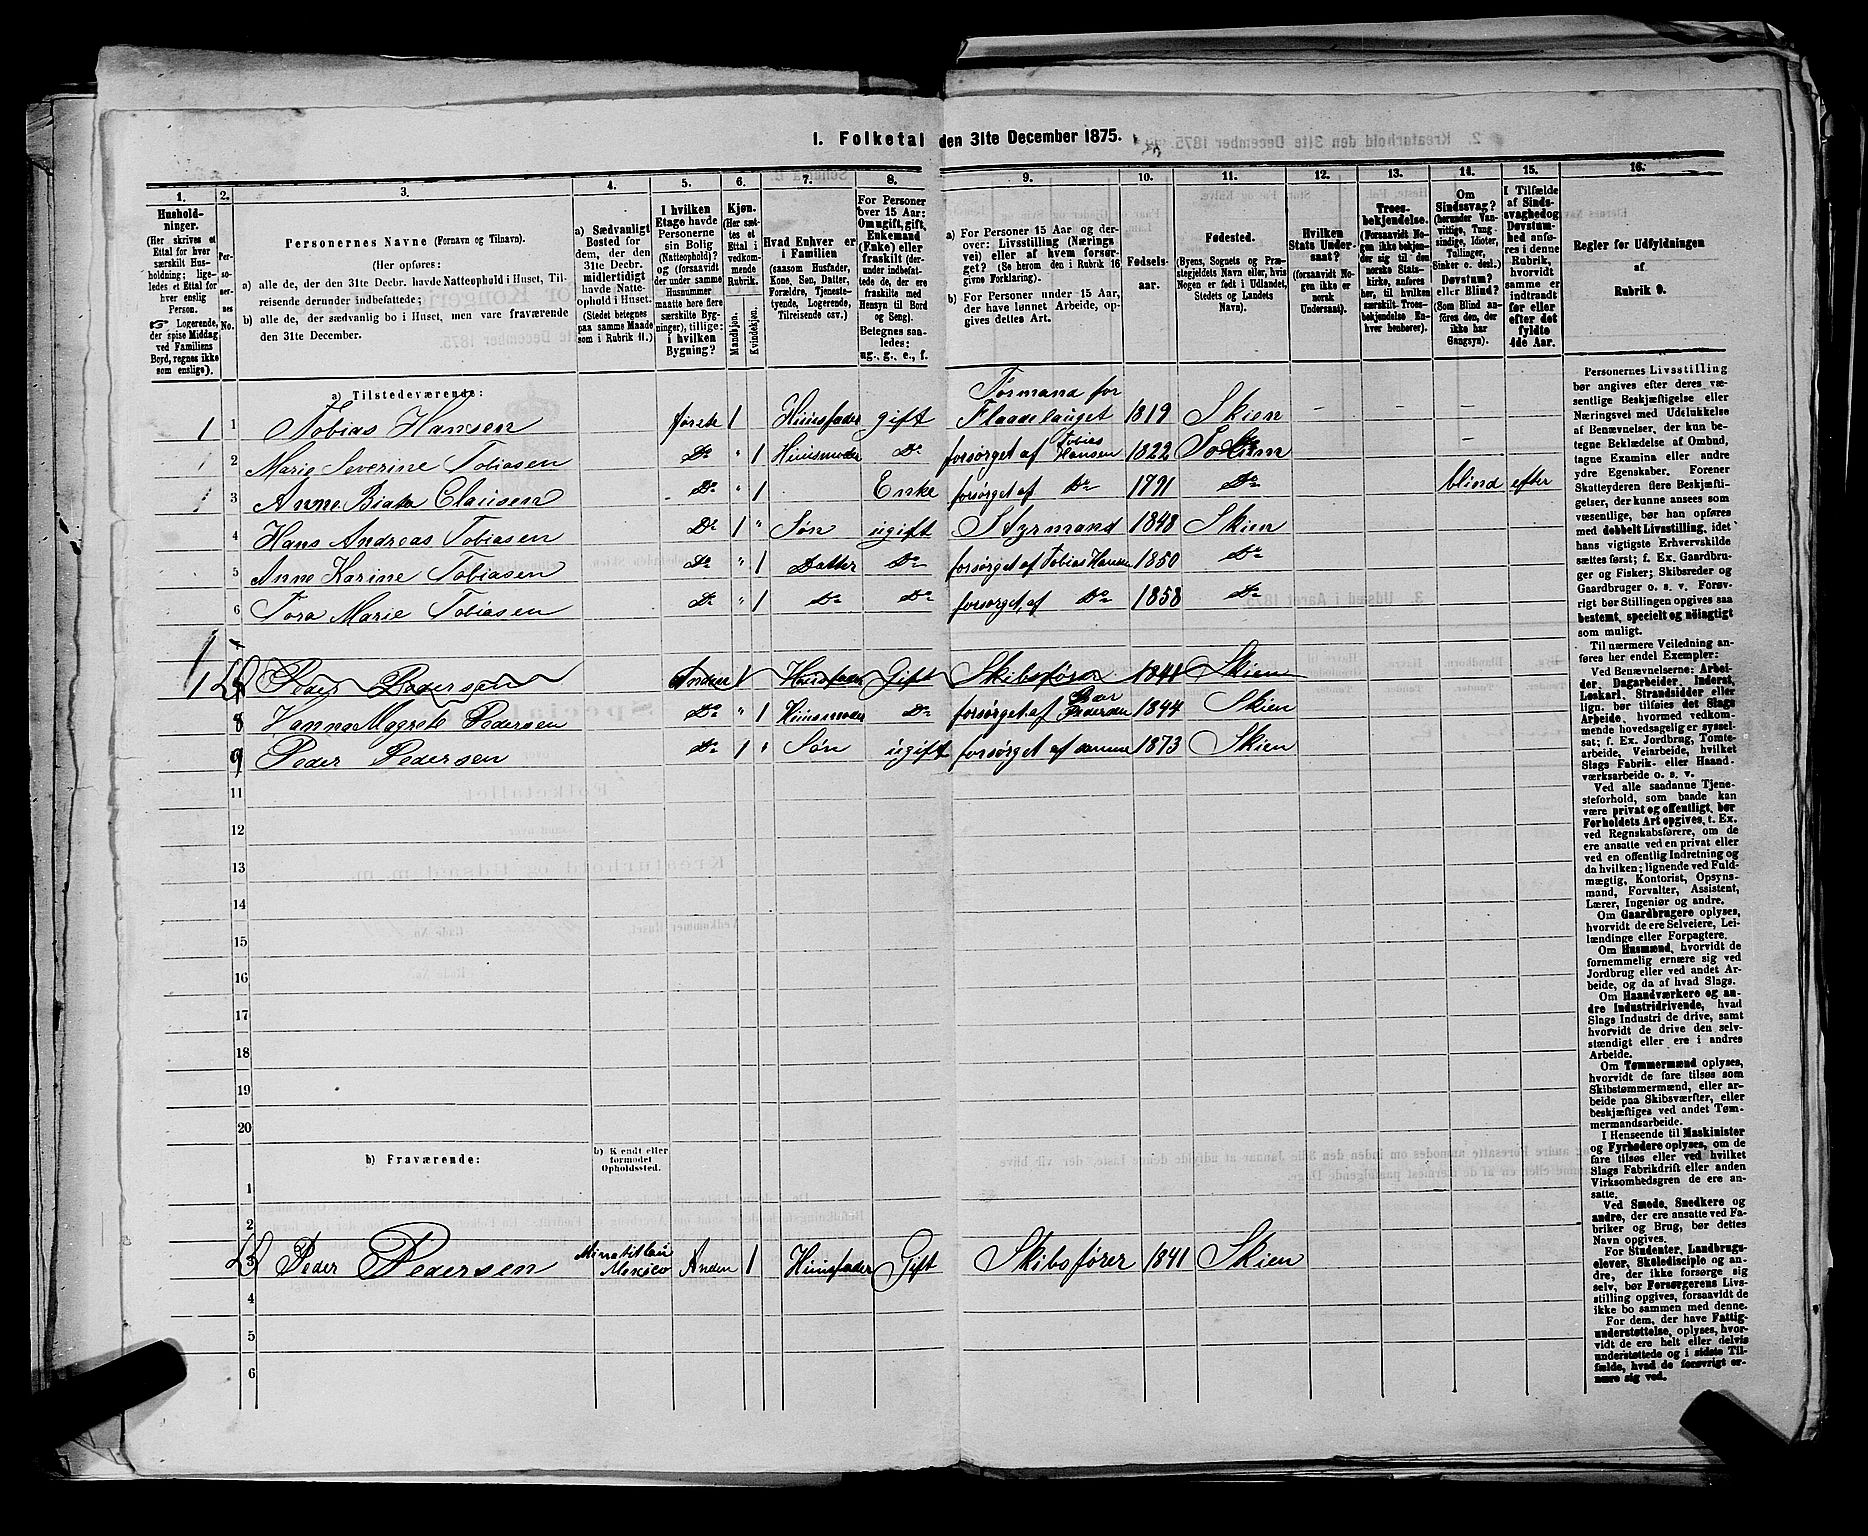 1. Folketal den 31te December 1875.
1. 2. 3. 4. 5. 6. 7. 8. 9. 10. 11. 12. 13. 14. 15. 16.
Husholdninger. (Her skrives et Ettal for hver særskilt Husholdning; ligeledes et Ettal for hver enslig Person. ☞ Logerende, der spise Middag ved Familiens Bord, regnes ikke som enslige).
Personernes No.
Personernes Navne (Fornavn og Tilnavn).
(Her opføres:
a) alle de, der den 31te Decbr. havde Natteophold i Huset, Tilreisende derunder indbefattede;
b) alle de, der sædvanlig bo i Huset, men vare fraværende den 31te December.
a) Sædvanligt Bosted for dem, der den 31te Decbr. midlertidigt havde Natteophold i Huset. (Stedet betegnes paa samme Maade som i Rubrik 11.)
I hvilken Etage havde Personerne sin Bolig (Natteophold)? og (forsaavidt der under samme Husnummer maatte høre flere særskilte Bygninger), tillige: i hvilken Bygning?
Kjøn. (Her sættes et Ettal i vedkommende Rubrik. Mandkjøn. Kvindekjøn.
Hvad Enhver er i Familien (saasom Husfader, Kone, Søn, Datter, Forældre, Tjenestetyende, Logerende, Tilreisende osv.)
For Personer over 15 Aar: Om ugift, gift, Enkemand (Enke) eller fraskilt (derunder indbefattede de, der ere fraskilte med Hensyn til Bord og Seng). Betegnes saaledes: ug., g., e., f.
a) For Personer 15 Aar og derover: Livsstilling (Næringsvei) eller af hvem forsørget? (Se herom den i Rubrik 16 givne Forklaring).
b) For Personer under 15 Aar, der have lønnet Arbeide, opgives dettes Art.
Fødselsaar.
Fødested. (Byens, Sognets og Præstegjeldets Navn eller, hvis Nogen er født i Udlandet, Stedets og Landets Navn).
Hvilken Stats Undersaat? (forsaavidt Nogen ikke er norsk Undersaat).
Troesbekjendelse. (Forsaavidt Nogen ikke bekjender sig til den norske Statskirke, anføres her, til hvilken særskilt Troesbekjendelse Enhver henhører).
Om Sindssvag? (herunder Vanvittige, Tungsindige, Idioter, Tullinger, Sinker o. desl.) Døvstum? eller Blind? (Som Blind anføres den, der ikke har Gangsyn).
I Tilfælde af Sindssvaghed og Døvstumhed anføres i denne Rubrik, hvorvidt samme er indtraadt før eller efter det fyldte 4de Aar.
Regler for Udfyldningen af Rubrik 9.
a) Tilstedeværende:
1 1 Tobias Hansen første 1 Huusfader gift Tørmand for Flaadelauget 1819 Skien - - - -
1 2 Marie Severine Tobiasen Do " 1 Huusmoder Do forsørget af Tobias Hansen 1822 -
1 3 Anne Biata Clausen Do " 1 Enke forsørget af Do 1791 Do blind efter
4 Hans Andreas Tobiasen Do 1 " Søn ugift Styrmand 1848 Skien
5 Anne Karine Tobiasen Do " 1 Datter Do forsørget af Tobias Hansen 1850 Do
6 Tora Marie Tobiasen Do " 1 Do Do forsørget af Do 1858 Do
1 Peder Pedersen Anden 1 Huusfader Gift Skibsfører 1841 Skien
8 Hanna Magrete Pedersen Do " 1 Huusmoder Do forsørget af Peder Pedersen 1844 Skien
9 Peder Pedersen Do 1 " Søn ugift forsørget af samme 1873 Skien
11
12
13
14
15
16
17
18
19
20
b) Fraværende:
b) Kjendt eller formodet Opholdssted.
1
2
3 Peder Pedersen Minatitlan Mexico Anden 1 Huusfader Gift Skibsfører 1841 Skien
4
5
6
Personernes Livsstilling
bør angives efter deres væ-
sentlige Beskjæftigelse eller
Næringsvei med Udelukkelse
af Benævnelser, der kun be-
tegne Beklædelse af Ombud,
tagne Examina eller andre
ydre Egenskaber. Forener
Skatteyderen flere Beskjæfti-
gelser, der kunne ansees som
væsentlige, bør han opføres
med dobbelt Livsstilling, idet
hans vigtigste Erhvervskilde
sættes først; f. Ex. Gaardbru-
ger og Fisker; Skibsreder og
Gaardbruger o. s. v. Forøv-
rigt bør Stillingen opgives saa
bestemt, specielt og nöiagtigt
som muligt.
Til nærmere Veiledning an-
føres her endel Exempler:
Ved Benævnelserne: Arbei-
der, Dagarbeider, Inderst,
Løskarl, Strandsidder eller
lign. bør tilføies det Slags
Arbeide, hvormed vedkom-
mende hovedsagelig er syssel-
sat; f. Ex. Jordbrug, Tomte-
arbeide, Veiarbeide, hvilket
Slags Fabrik- eller Haand-
værksarbeide o. s. v.
Ved alle saadanne Tjene-
steforhold, som baade kan
være privat og offentligt, bør
Forholdets Art opgives, t. Ex.
ved Regnskabsførere, om de
ere ansatte ved en privat eller
ved en offentlig Indretning og
da hvilken; lignende ved Fuld-
mægtig, Kontorist, Opsyns-
mand, Forvalter, Assistent,
Lærer, Ingeniør og andre.
Om Gaardbrugere oplyses,
hvorvidt de ere Selveiere, Lei-
lændinge eller Forpagtere.
Om Husmænd, hvorvidt de
fornemmelig ernære sig ved
Jordbrug eller ved andet Ar-
beide, og da af hvad Slags.
Om Haandværkere og an-
dre Industridrivende, hvad
Slags Industri de drive, samt
hvorvidt de drive den selv-
stændigt eller ere i andres
Arbeide.
Om Tømmermænd oplyses,
hvorvidt de fare tilsøs som
Skibstømmermænd, eller ar-
beide paa Skibsværfter, eller
beskjæftiges ved andet Tøm-
mermandsarbeide.
I Henseende til Maskinister
og Fyrbødere oplyses, om de
fare tilsøs eller ved hvilket
Slags Fabrikdrift eller anden
Virksomhedsgren de ere an-
satte.
Ved Smede, Snedkere og
andre, der ere ansatte ved Fa-
briker og Brug, bør dettes
Navn opgives.
For Studenter, Landbrugs-
elever, Skoledisciple og an-
dre, der ikke forsørge sig
selv, bør Forsørgerens Livs-
stilling opgives, forsaavidt de
ikke bo sammen med denne.
For dem, der have Fattig-
understøttelse, oplyses, hvor-
vidt de ere helt eller delvis
understøttede og i sidste Til-
fælde, hvad de forøvrigt er-
nære sig ved.